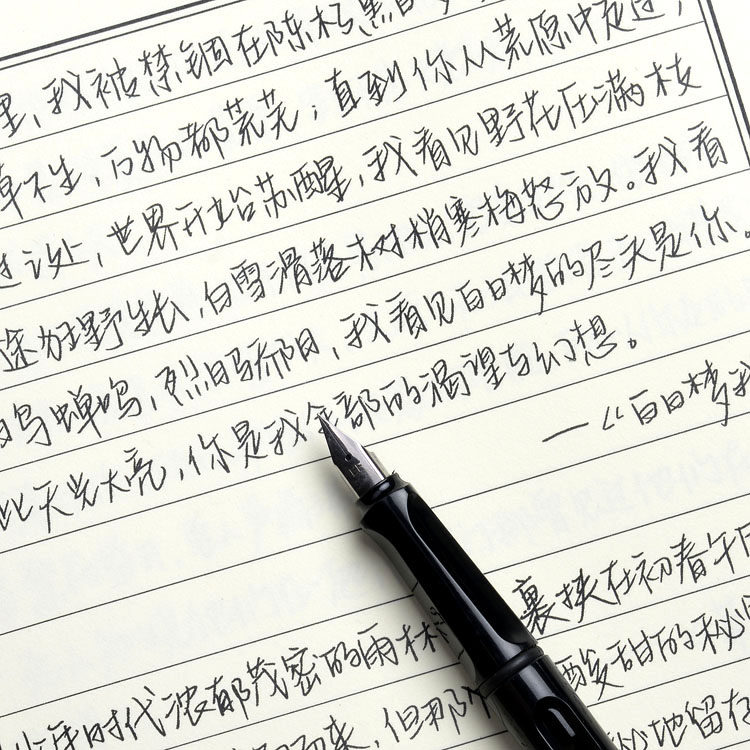 里,我被禁锢在陈朽黑白
草不生,万物都荒芜;直到你从荒原中走过,
过之处,世界开始苏醒,我看见野花压满枝
途狂野生长,白雪滑落树梢寒梅怒放。我看
鸟蝉鸣,烈日骄阳,我看见白日梦的尽头是你。
此天光大亮,你是我全部的渴望与幻想。
—《白日梦我
裹挟在初春午
少年时代浓郁茂密的雨林
酸甜的秘
来,但那
地留在